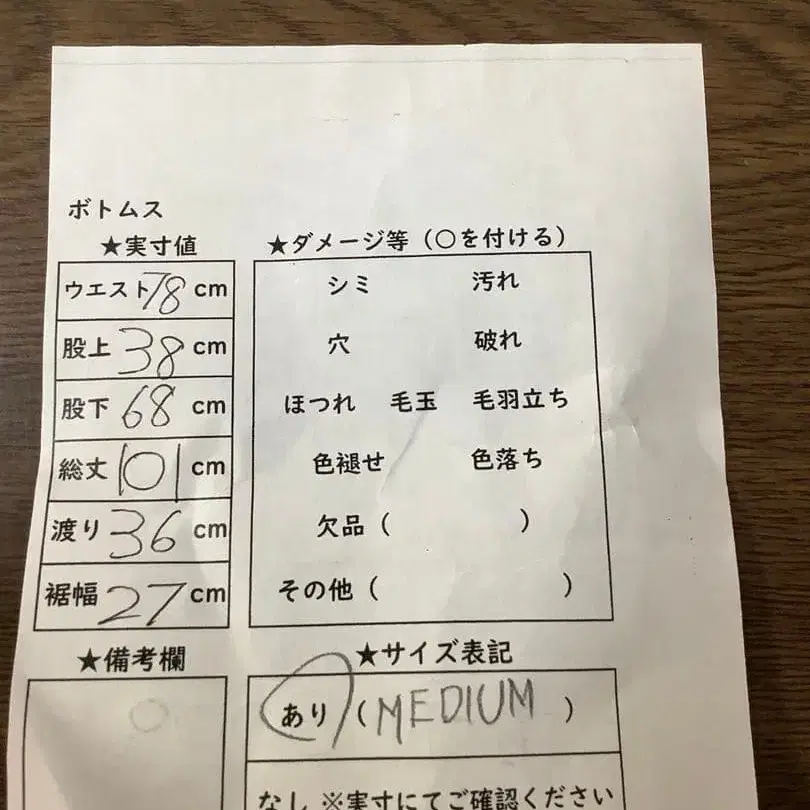 ボトムス
★実寸値
ウエスト 78 cm
股上 38 cm
股下 68 cm
総丈 101 cm
渡り 36 cm
裾幅 27 cm
★ダメージ等（○を付ける）
シミ 汚れ
穴 破れ
ほつれ 毛玉 毛羽立ち
色褪せ 色落ち
欠品（ ）
その他（ ）
★備考欄
★サイズ表記
あり（MEDIUM）
なし ※実寸にてご確認ください